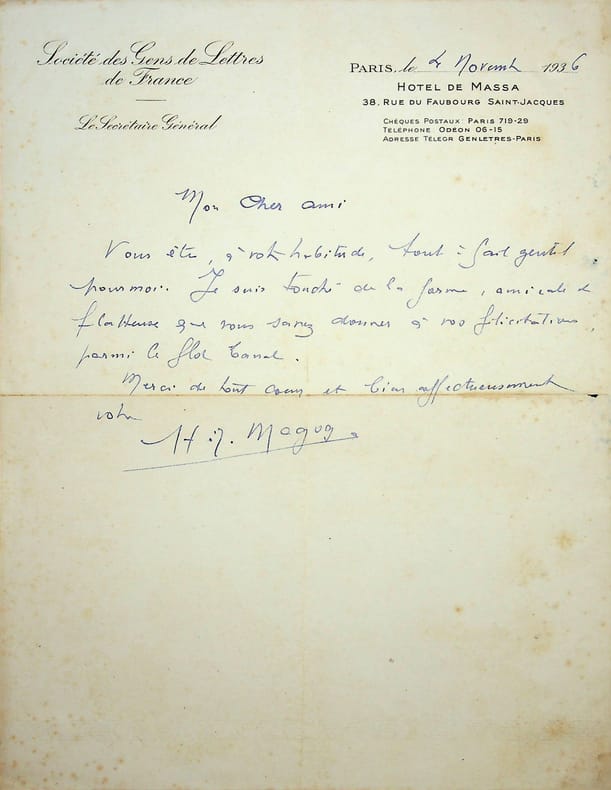 Société des Gens de Lettres
de France
Le Secrétaire Général
PARIS, le 4 Novemb 1936
HOTEL DE MASSA
38, RUE DU FAUBOURG SAINT-JACQUES
CHÈQUES POSTAUX: PARIS 719-29
TÉLÉPHONE ODÉON 06-15
ADRESSE TÉLÉGR GENLETRES-PARIS
Mon Cher ami
Vous êtes, à votre habitude, tout à fait gentil
pour moi. Je suis touché de la forme, amicale et
flatteuse que vous savez donner à vos félicitations,
parmi le flot banal.
Merci de tout coeur et bien affectueusement
votre
H. J. Magog